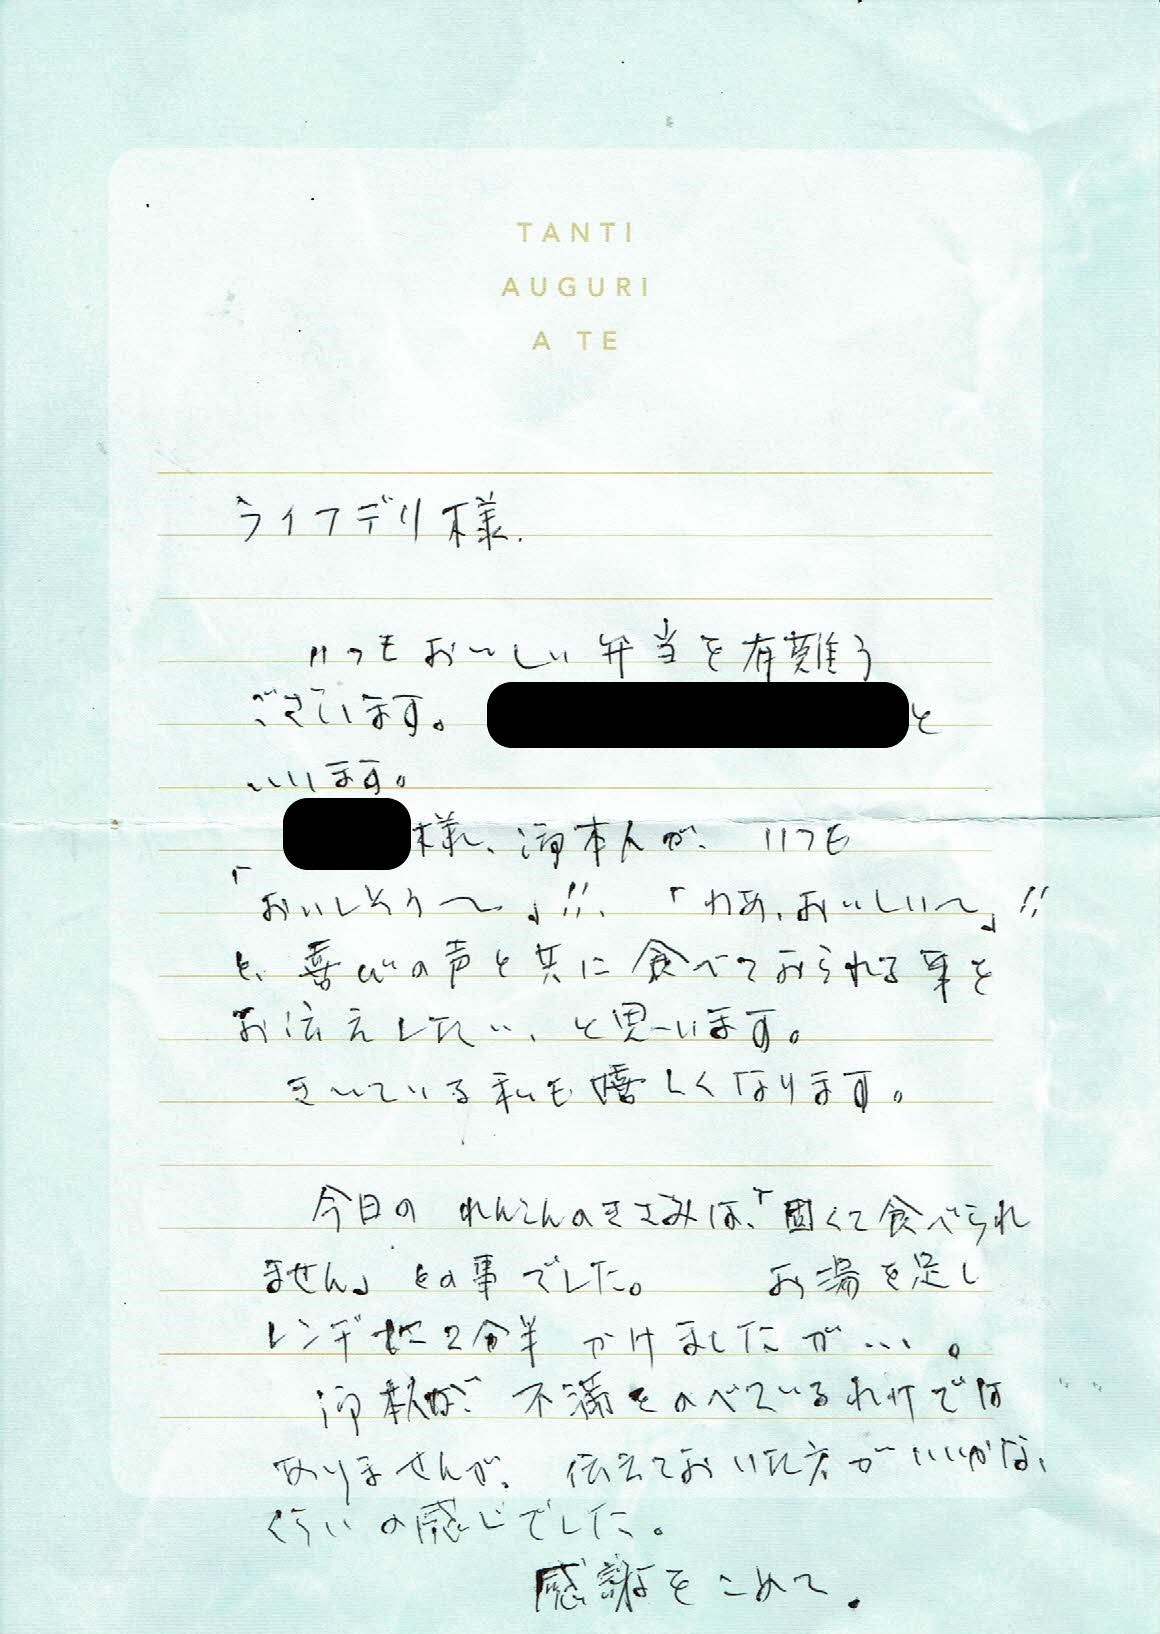 TANTI
AUGURI
A TE
ライフデリ様.
いつもおいしい弁当を有難う
ございます。と
いいます。
様、御本人が、いつも
「おいしそう〜」!!、「わあ、おいしい〜」!!
と、喜びの声と共に食べておられる事を
お伝えしたい、と思います。
きいている私も嬉しくなります。
今日のれんこんのきざみは、「固くて食べられ
ません」との事でした。 お湯を足し
レンヂで2分半かけましたが…。
御本人が、不満をのべているわけでは
ありませんが、伝えておいた方がいいかな、
くらいの感じでした。
感謝をこめて.